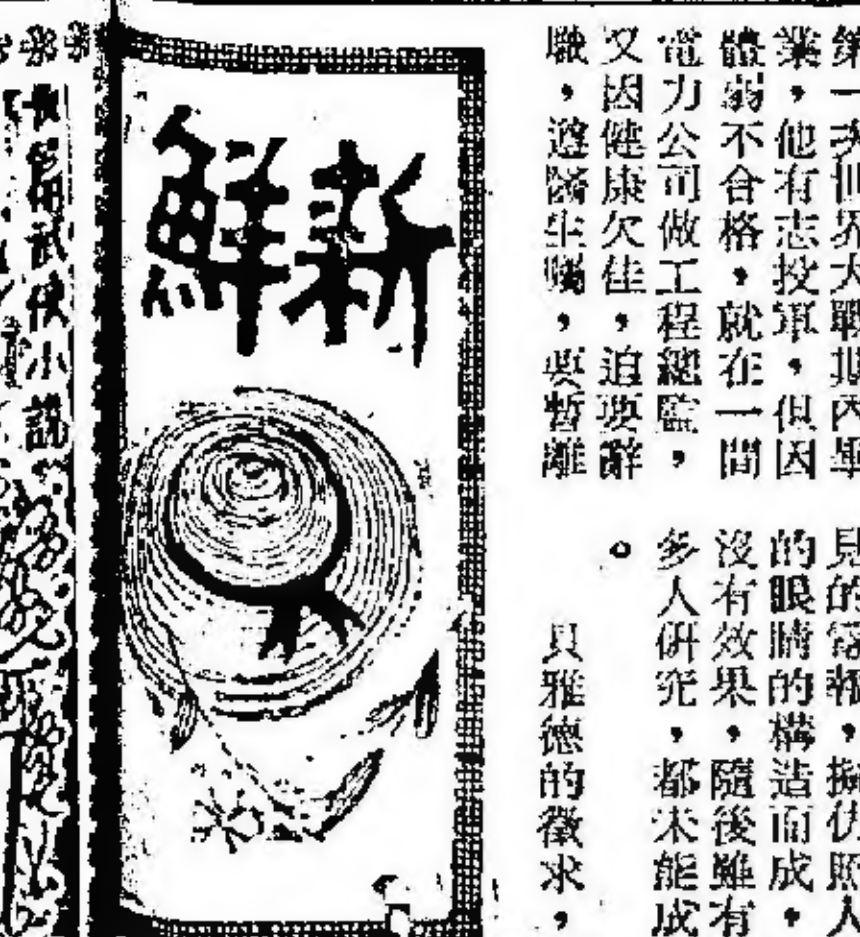 第一次世界大戰期內畢
業，他有志投軍，但因
體弱不合格，就在一間
電力公司做工程總監，
又因健康欠佳，迫要辭
職，遵醫生囑，要暫離
見的電報，擬仿照人
的眼睛的構造而成，
沒有效果，隨後雖有
多人研究，都未能成
。
貝雅德的徵求，
新鮮
武俠小說